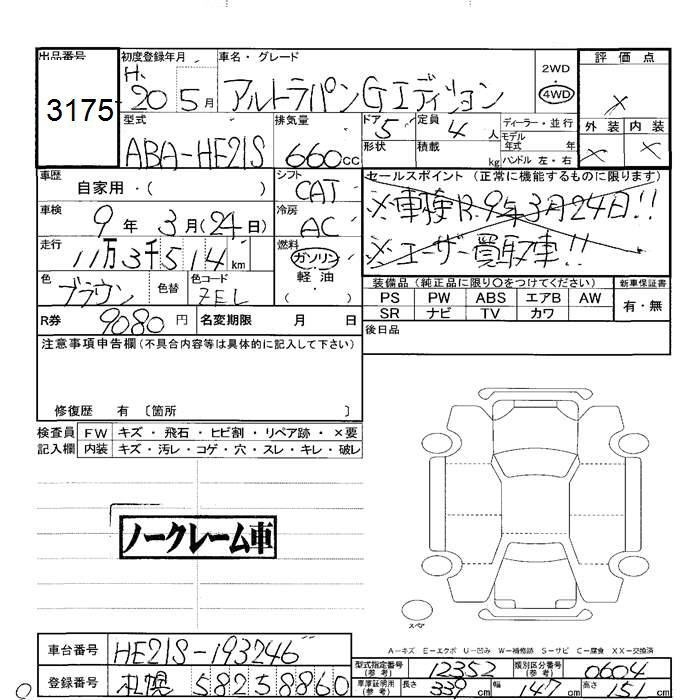 出品番号 3175
初度登録年月 H. 20 5月
車名・グレード アルトラパンGエディション
2WD
4WD
評価点 ×
外装 × 内装 ×
型式 ABA-HE21S
排気量 660cc
ドア 5 形状
定員 4人 積載 kg
ディーラー・並行
モデル年式 年
ハンドル 左・右
車歴 自家用・( )
シフト CAT
セールスポイント (正常に機能するものに限ります)
※車検R.9年3月24日!!
※ユーザー買取車!!
車検 9年 3月(24日)
冷房 AC
走行 11万3千514km
燃料 ガソリン 軽油 ・
色 ブラウン 色替 色コード ZEL
装備品(純正品に限り〇をつけてください) 新車保証書
PS PW ABS エアB AW
SR ナビ TV カワ
有・無
R券 9080円 名変期限 月 日
後日品
注意事項申告欄(不具合内容等は具体的に記入して下さい)
修復歴 有 〔箇所 〕
検査員記入欄
FW キズ・飛石・ヒビ割・リペア跡・×要
内装 キズ・汚レ・コゲ・穴・スレ・キレ・破レ
ノークレーム車
スペア
A-キズ E-エクボ U-凹み W-補修跡 S-サビ C-腐食 XX-交換済
車台番号 HE21S-193246
登録番号 札幌 58258860
型式指定番号(参考) 12352 類別区分番号(参考) 0604
車庫証明用(参考) 長さ 339cm 幅 147cm 高さ 151cm